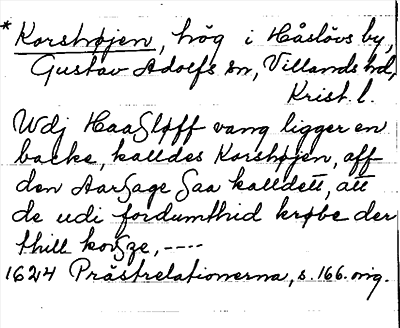 * Korshøjen, hög i Håslövs by,
Gustav Adolfs sn, Villands hd,
Krist. l.
Udj Haaßløff vang ligger en
backe, kalldes Korshøjen, aff
den Aarßage ßaa kalldett, att
de udi fordumthid krøbe der
thill korßze, ----
1624 Prästrelationerna, s. 166. orig.